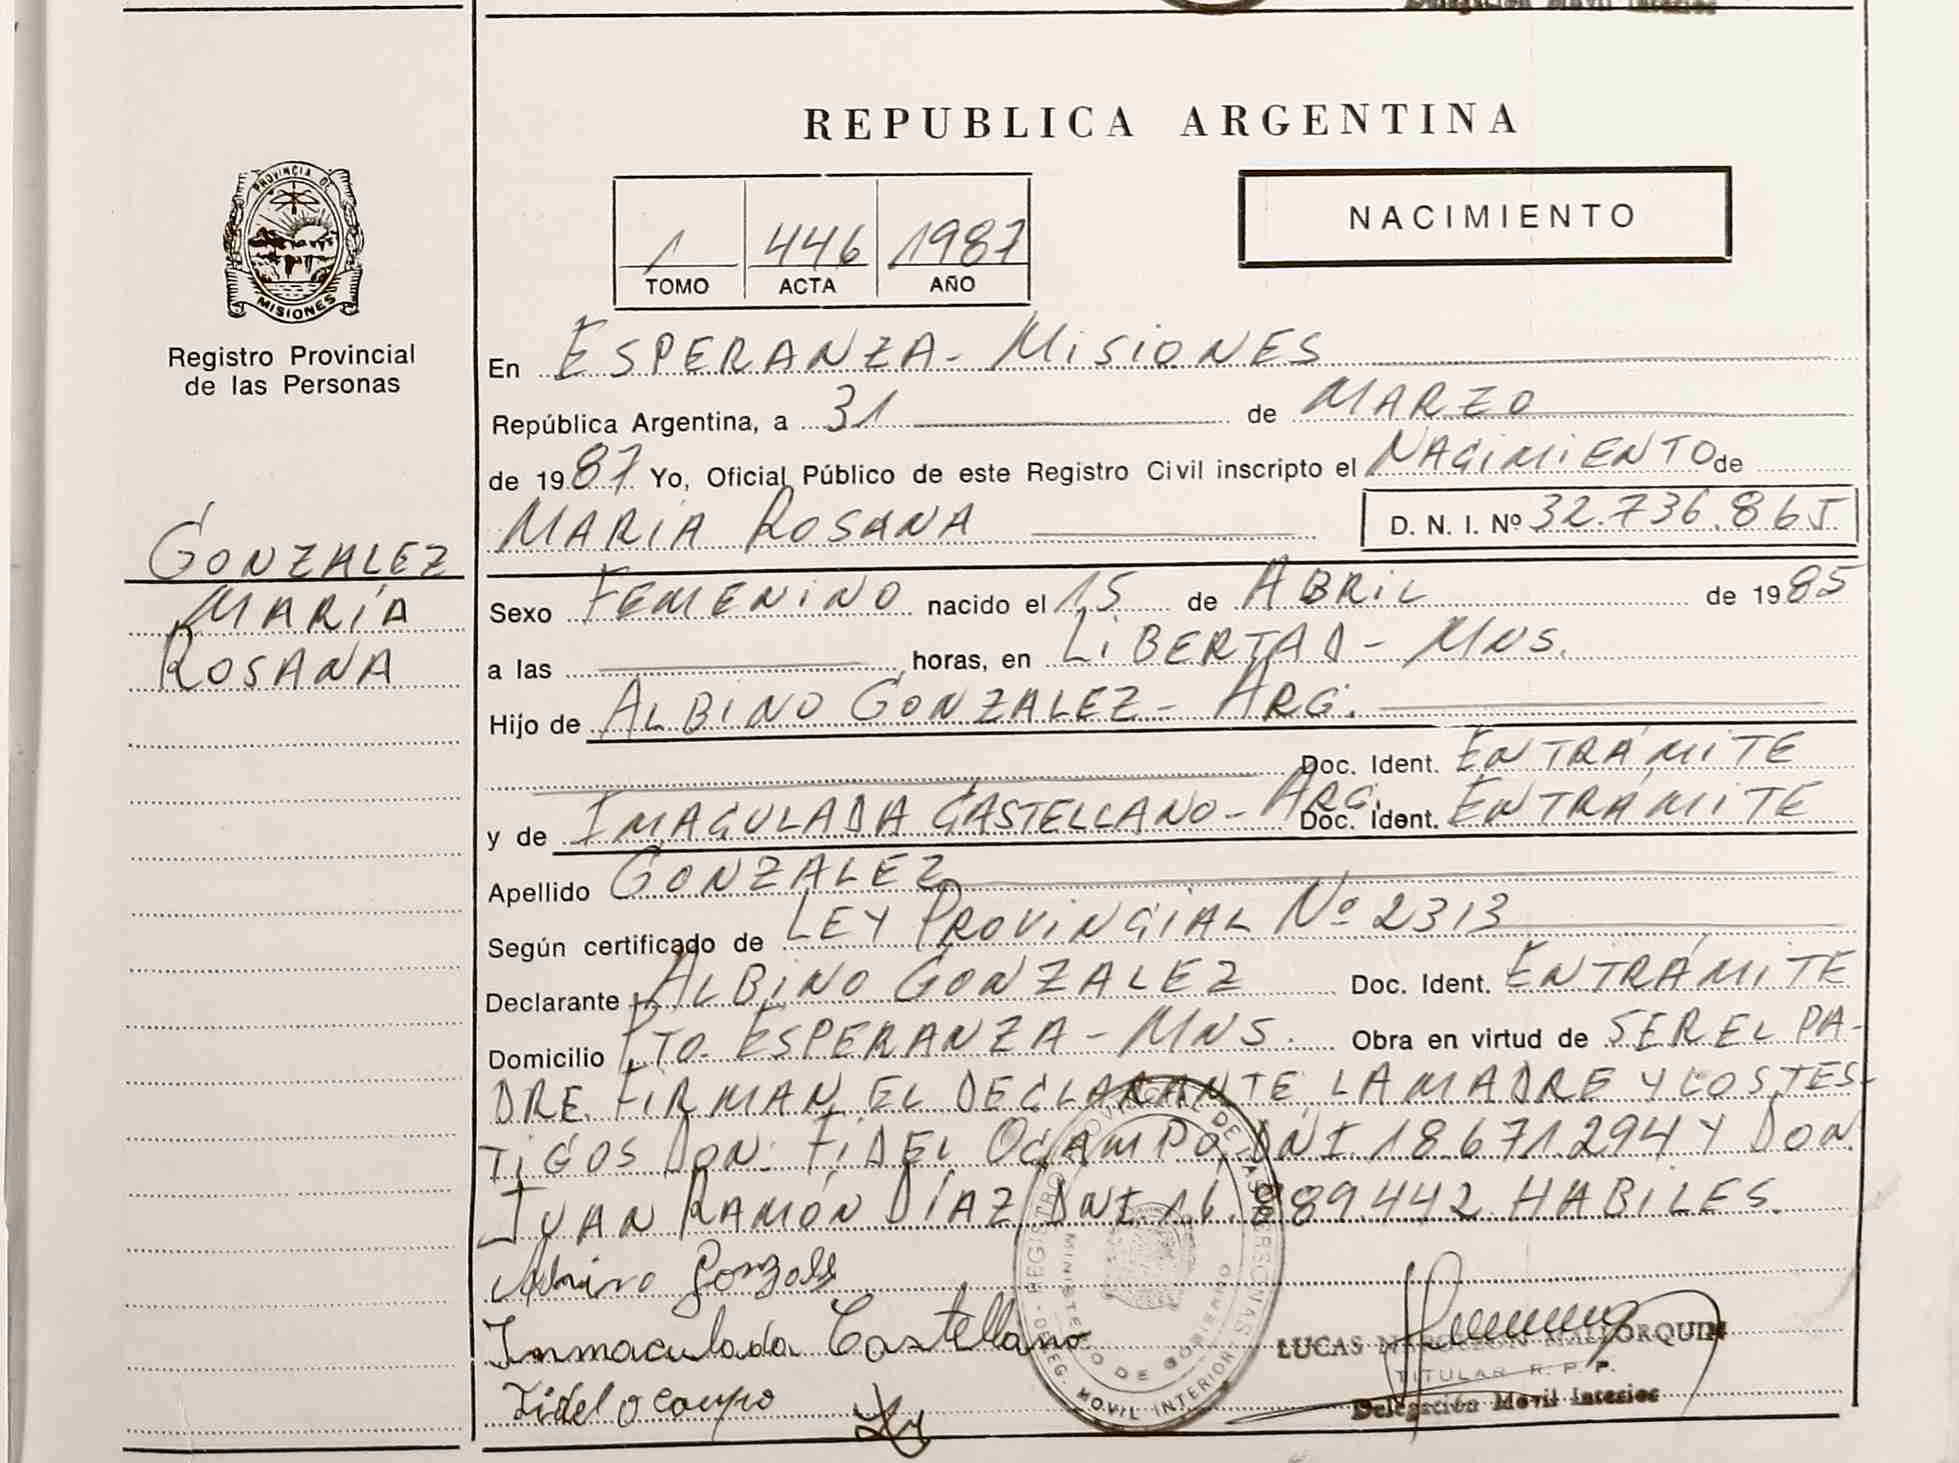 Delegación Movil Interior
REPUBLICA ARGENTINA
PROVINCIA DE
MISIONES
Registro Provincial
de las Personas
1 446 1987
TOMO ACTA AÑO
NACIMIENTO
GONZALEZ
MARÍA
ROSANA
En ESPERANZA - MISIONES
República Argentina, a 31 de MARZO
de 1987 Yo, Oficial Público de este Registro Civil inscripto el NACIMIENTO de
MARÍA ROSANA D. N. I. Nº 32.736.865
Sexo FEMENINO nacido el 15 de ABRIL de 1985
a las horas, en LIBERTAD - MNS.
Hijo de ALBINO GONZALEZ - ARG.
Doc. Ident. EN TRÁMITE
y de IMACULADA CASTELLANO - ARG. Doc. Ident. EN TRÁMITE
Apellido GONZALEZ
Según certificado de LEY PROVINCIAL Nº 2313
Declarante ALBINO GONZALEZ Doc. Ident. EN TRÁMITE
Domicilio PTO. ESPERANZA - MNS. Obra en virtud de SER EL PA-
DRE. FIRMAN EL DECLARANTE, LA MADRE Y LOS TES-
TIGOS DON: FIDEL OCAMPO DNI. 18.671.294 Y DON
JUAN RAMÓN DÍAZ DNI. 16.989.442 HABILES.
Albino Gonzalez
Inmaculada Castellano
Fidel Ocampo
REGISTRO PROVINCIAL DE LAS PERSONAS
MINISTERIO DE GOBIERNO
DELEG. MOVIL INTERIOR
LUCAS MALLORQUIN
TITULAR R. P. P.
Delegación Movil Interior